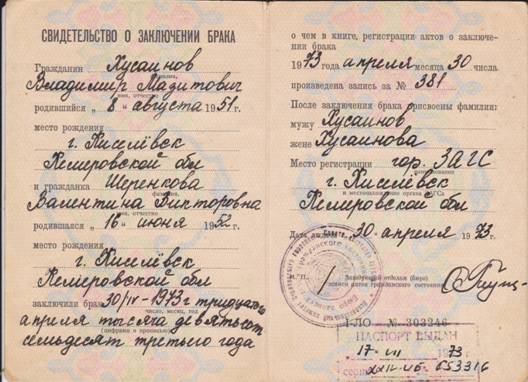 СВИДЕТЕЛЬСТВО О ЗАКЛЮЧЕНИИ БРАКА
Гражданин Хусаинов
Владимир Мадитович
имя, отчество
родившийся „ 8 " августа 1951г.
место рождения
г. Киселёвск
Кемеровской обл
и гражданка Шеренкова
фамилия,
Валентина Викторовна
имя, отчество
родившаяся „ 16 " июня 1952г.
место рождения
г. Киселёвск
Кемеровской обл
заключили брак 30/IV-1973г тридцатого
число, месяц, год
апреля тысяча девятьсот
(цифрами и прописью)
семьдесят третьего года
о чем в книге, регистрации актов о заключе-
нии брака
1973 года апреля месяца 30 числа
произведена запись за № 381
После заключения брака присвоены фамилии:
мужу Хусаинов
жене Хусаинова
Место регистрации гор. ЗАГС
наименование
г. Киселёвск
и местонахождение органа ЗАГСа
Кемеровской обл
Дата 30 апреля 1973г.
М. П.
Заведующий отделом (бюро)
записи актов гражданского состояния
I-ЛО № 303346
ПАСПОРТ ВЫДАН
17-VII 1973
653316